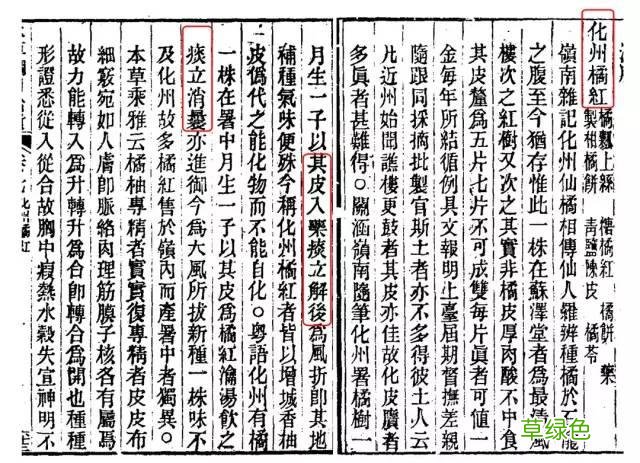 化州橘紅 橘瓤上絲 製柑橘餅 橘紅 橘餅 藥 青鹽陳皮 橘苓
嶺南雜記化州仙橘相傳仙人羅辨種橘於石龍
之腹至今猶存惟此一株在蘇澤堂者為最清風
樓次之紅樹又次之其實非橘皮厚肉酸不中食
其皮釐為五片七片不可成雙每片真者可值一
金每年所結循例具文報明上臺屆期督撫差親
隨跟同採摘批製官斯土者亦不多得彼土人云
凡近州始聞譙樓更鼓者其皮亦佳故化皮贋者
多真者甚難得○關涵嶺南隨筆化州署橘樹一
月生一子以其皮入藥痰立解後為風折即其地
補種氣味便殊今稱化州橘紅者皆以增城香柚
皮偽代之能化物而不能自化○粵語化州有橘
一株在署中月生一子以其皮為橘紅瀹湯飲之
痰立消曩亦進御今為大風所拔新種一株味不
及化州故多橘紅售於嶺內而產署中者獨異○
本草乘雅云橘柚專精者實實復專精者皮皮布
細竅宛如人膚即脈絡肉理筋膜子核各有屬焉
故力能轉入為升轉升為合即轉合為開也種種
形證悉從入從合故胸中瘕熱水穀失宣神明不
草绿色